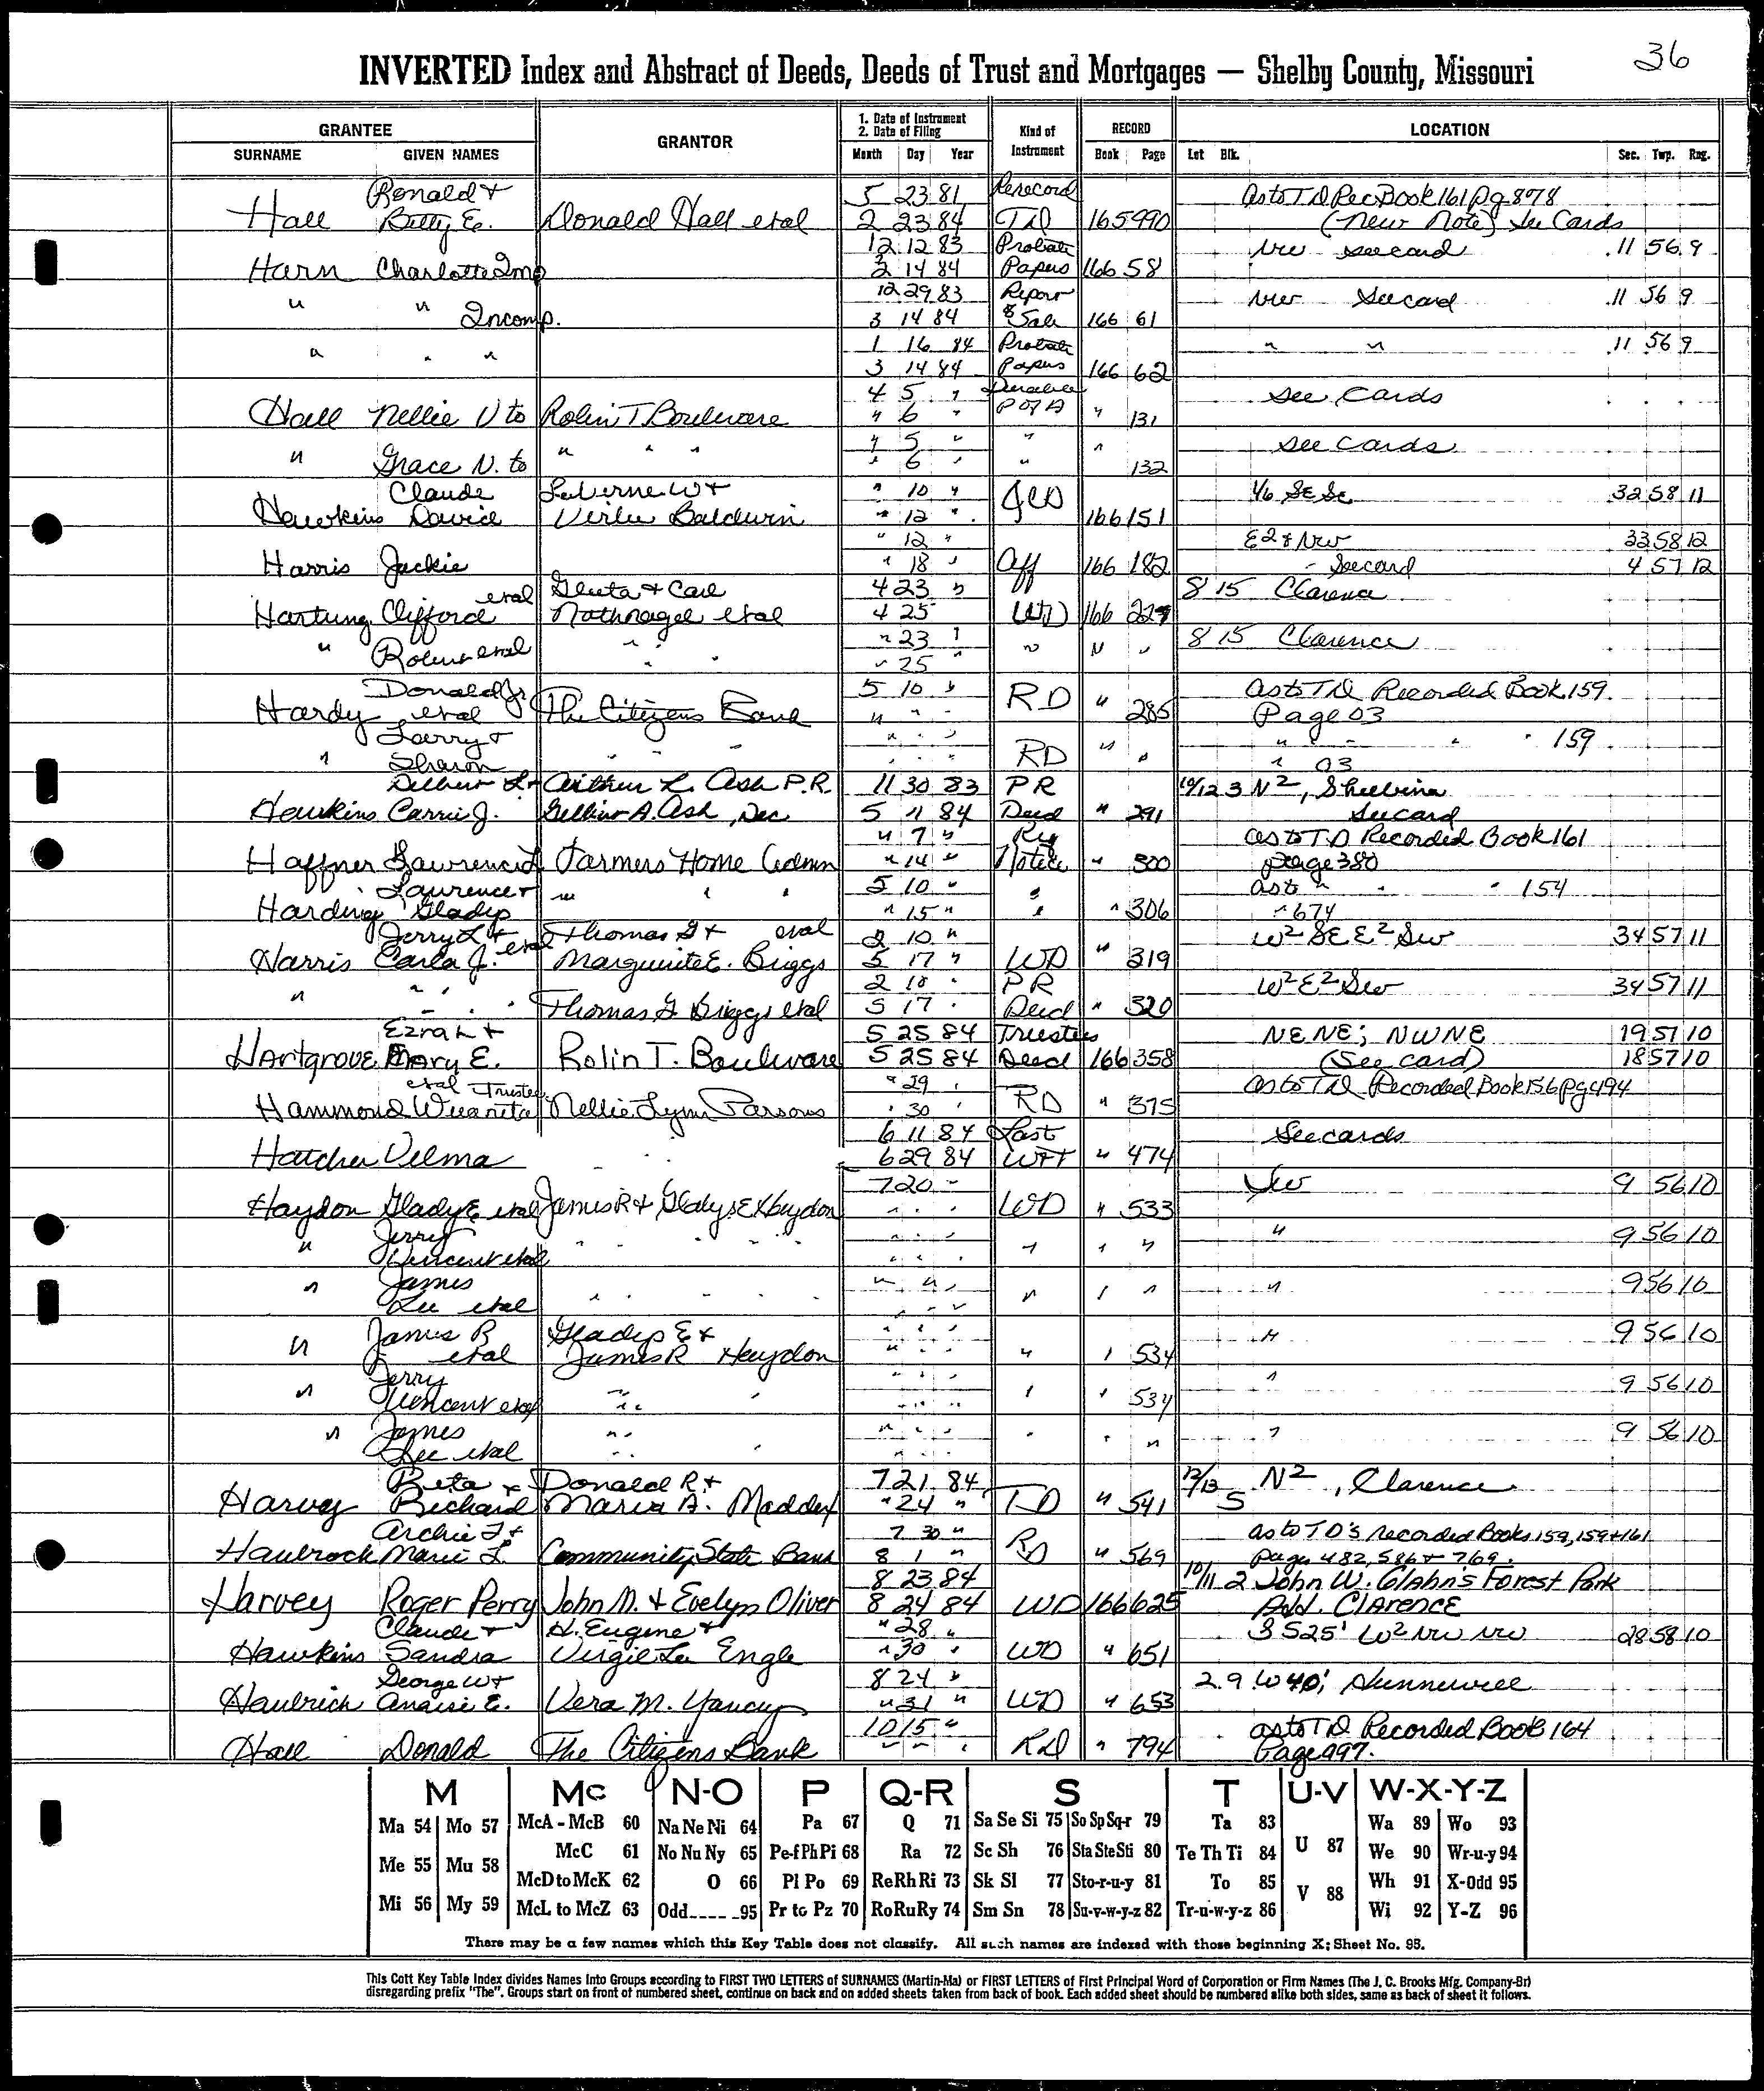 36
INVERTED Index and Abstract of Deeds, Deeds of Trust and Mortgages — Shelby County, Missouri
GRANTEE GRANTOR 1. Date of Instrument 2. Date of Filing Kind of Instrument RECORD LOCATION
SURNAME GIVEN NAMES Month Day Year Book Page Lot Blk. Sec. Twp. Rng.
Ronald + 5 23 81 Rerecord as to TD Rec Book 161 pg 878
Hall Betty E. Donald Hall etal 2 23 84 TD 165 990 (New Note) See Cards
12 12 83 Probate NW see card 11 56 9
Harn Charlotte Imp 2 14 84 Papers 166 58
" " 12 29 83 Report NW See card 11 56 9
Incomp. 3 14 84 & Sale 166 61
" " " 1 16 84 Probate " " 11 56 9
3 14 84 Papers 166 62
4 5 " Durable See Cards
Hall Nellie V to Rolin T Boulware " 6 " P of A " 131
" " " " 4 5 " " " See Cards
Grace N. to " 6 " " 132
Claude LaVerne W + " 10 " 1/6 SE SE 32 58 11
Hawkins David Virlie Baldwin " 12 " QCD 166 151
" 12 " E2 & NW 33 58 12
Harris Jackie " 18 " Aff 166 182 See card 4 57 12
etal Gleuta + Carl 4 23 " 8 15 Clarence
Hartung Clifford Nothnagel etal 4 25 WD 166 227
" Robert etal " " " 23 " " " " 8 15 Clarence
" 25 "
Donald Jr. 5 10 " RD as to TD Recorded Book 159
Hardy etal The Citizens Bank " " " " 285 Page 03
Larry + " " " " " " " " 159
" Sharon " " " RD " " " 03
Delbert L + Arthur L. Ash P.R. 11 30 83 PR 10/12 3 N2, Shelbina
Hawkins Carrie J. Gilbert A. Ash, Dec 5 11 84 Deed " 291 See card
" 7 " Req as to TD Recorded Book 161
Haffner Lawrence L Farmers Home Admn " 14 " Notice " 300 page 380
Laurence + " " " 5 10 " " as to " " " 154
Harding Gladys " 15 " " " 306 " 674
Jerry L + Thomas G + etal 2 10 " W2 SE E2 SW 34 57 11
Harris Carla J. etal Marguerite E. Briggs 5 17 " WD " 319
" " " 2 10 " PR W2 E2 SW 34 57 11
Thomas G Briggs etal 5 17 " Deed " 320
Ezra L + 5 25 84 Trustees NE NE; NW NE 19 57 10
Hartgrove Mary E. Rolin T. Boulware 5 25 84 Deed 166 358 (See card) 18 57 10
etal Trustee " 29 " as to TD Recorded Book 156 pg 494
Hammond Wuanita Nellie Lynn Parsons " 30 " RD " 375
6 11 84 Last See cards
Hatcher Velma 6 29 84 W+T " 474
7 20 " SW 9 56 10
Haydon Gladys E etal James R + Gladys E Haydon " " " WD " 533
" Jerry " " " " " " " " " " " 9 56 10
Vincent etal " " "
" James " " " " " " " " " " 9 56 10
Lee etal " " "
" James R Gladys E + " " " " 9 56 10
etal James R Haydon " " " " " 534
" Jerry " " " " " " 9 56 10
Vincent etal " " " " " " 534
" James " " " " " " " " " 9 56 10
Lee etal " " " " "
Reta + Donald R + 7 21 84 12/13 N2, Clarence
Harvey Richard Maria A. Maddex " 24 " TD " 541 5
Archie F + 7 30 " as to TD's recorded Books 159, 159 + 161
Haubrock Marie L. Community State Bank 8 1 " RD " 569 page 482, 586 + 769.
8 23 84 10/11 2 John W. Glahn's Forest Park
Harvey Roger Perry John M. + Evelyn Oliver 8 24 84 WD 166 625 Add. Clarence
Claude + H. Eugene + " 28 " S 525' W2 NW NW 28 58 10
Hawkins Sandra Virgil La Engle " 30 " WD " 651
George W + 8 24 " 2 9 W 40', Hunnewell
Haubrich E. Vera M. Yancey " 31 " WD " 653
10 15 " as to TD Recorded Book 164
Hall Donald The Citizens Bank " " " RD " 794 Page 997.
M Mc N-O P Q-R S T U-V W-X-Y-Z
Ma 54 Mo 57 McA - McB 60 Na Ne Ni 64 Pa 67 Q 71 Sa Se Si 75 So Sp Sq-r 79 Ta 83 Wa 89 Wo 93
Me 55 Mu 58 McC 61 No Nu Ny 65 Pe-f Ph Pi 68 Ra 72 Sc Sh 76 Sta Ste Sti 80 Te Th Ti 84 U 87 We 90 Wr-u-y 94
McD to McK 62 O 66 Pl Po 69 Re Rh Ri 73 Sk Sl 77 Sto-r-u-y 81 To 85 V 88 Wh 91 X-Odd 95
Mi 56 My 59 McL to McZ 63 Odd-----95 Pr to Pz 70 Ro Ru Ry 74 Sm Sn 78 Su-v-w-y-z 82 Tr-u-w-y-z 86 Wi 92 Y-Z 96
There may be a few names which this Key Table does not classify. All such names are indexed with those beginning X; Sheet No. 95.
This Cott Key Table Index divides Names Into Groups according to FIRST TWO LETTERS of SURNAMES (Martin-Ma) or FIRST LETTERS of First Principal Word of Corporation or Firm Names (The J. C. Brooks Mfg. Company-Br)
disregarding prefix "The". Groups start on front of numbered sheet, continue on back and on added sheets taken from back of book. Each added sheet should be numbered alike both sides, same as back of sheet it follows.